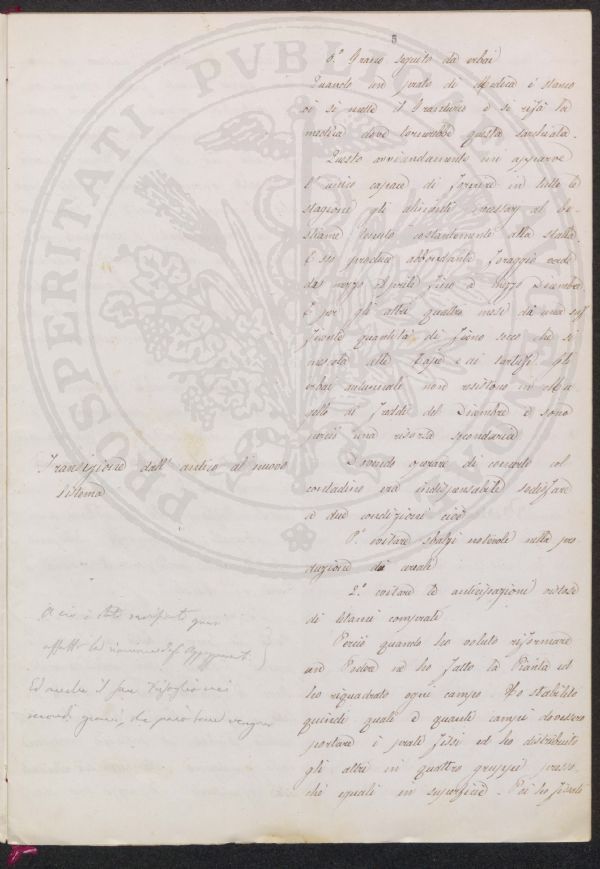 5
6.° Grano seguito da erbai
Quando un prato di Medica è stanco
vi si mette il Granturco e si rifà la
medica dove tornerebbe questa sarchiata.
Questo avvicendamento mi apparve
l'unico capace di fornire in tutte le
stagioni gli alimenti necessary al be-
stiame tenuto costantemente alla stalla.
Esso produce abbondante foraggio verde
dal mezzo Aprile fino a mezzo Dicembre
E per gli altri quattro mesi dà una suf
ficiente quantità di fieno secco che si
mescola alle rape e ai tartufi. Gli
erbai autunnali non resistono in
ai freddi del Dicembre e sono
perciò una risorsa secondaria
Transizione dall'antico al nuovo
sistema
Dovendo operare di concerto col
contadino era indispensabile sodisfare
a due condizioni cioè
1.° evitare sbalzi notevoli nella pro
duzione dei cereali
2.° evitare le anticipazioni vistose
di letami comprati
Perciò quando ho voluto riformare
un Podere ne ho fatto la Pianta ed
ho riquadrato ogni campo. Ho stabilito
quindi quali e quanti campi dovessero
portare i prati fissi ed ho distribuito
gli altri in quattro gruppi presso-
ché eguali in superficie. Poi ho
A ciò è stato
effetto la
Ed anche il
secondi grani, che però bene vengono
PROSPERITATI PUBLICAE